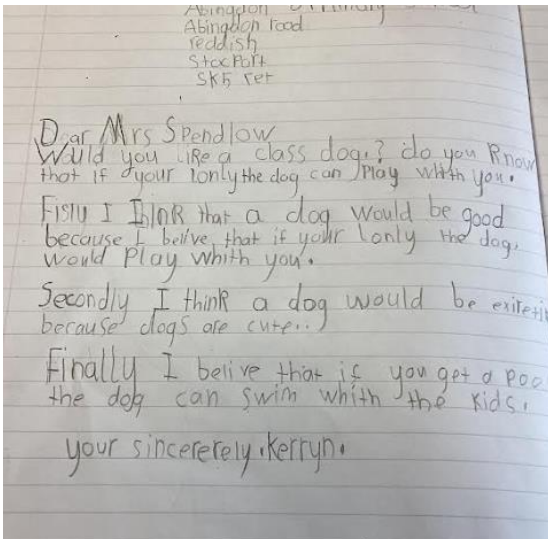 Abingdon Primary
Abingdon road
reddish
Stockport
SK5
Dear Mrs Spendlow
Would you like a class dog.? do you know
that if your lonly the dog can play whith you.
Fistly I think that a dog would be good
because I belive that if your lonly the dog.
would play whith you.
Secondly I think a dog would be
because dogs are cute..
Finally I belive that if you get a
the dog can swim whith the kids.
your sincererely.Kerryn.